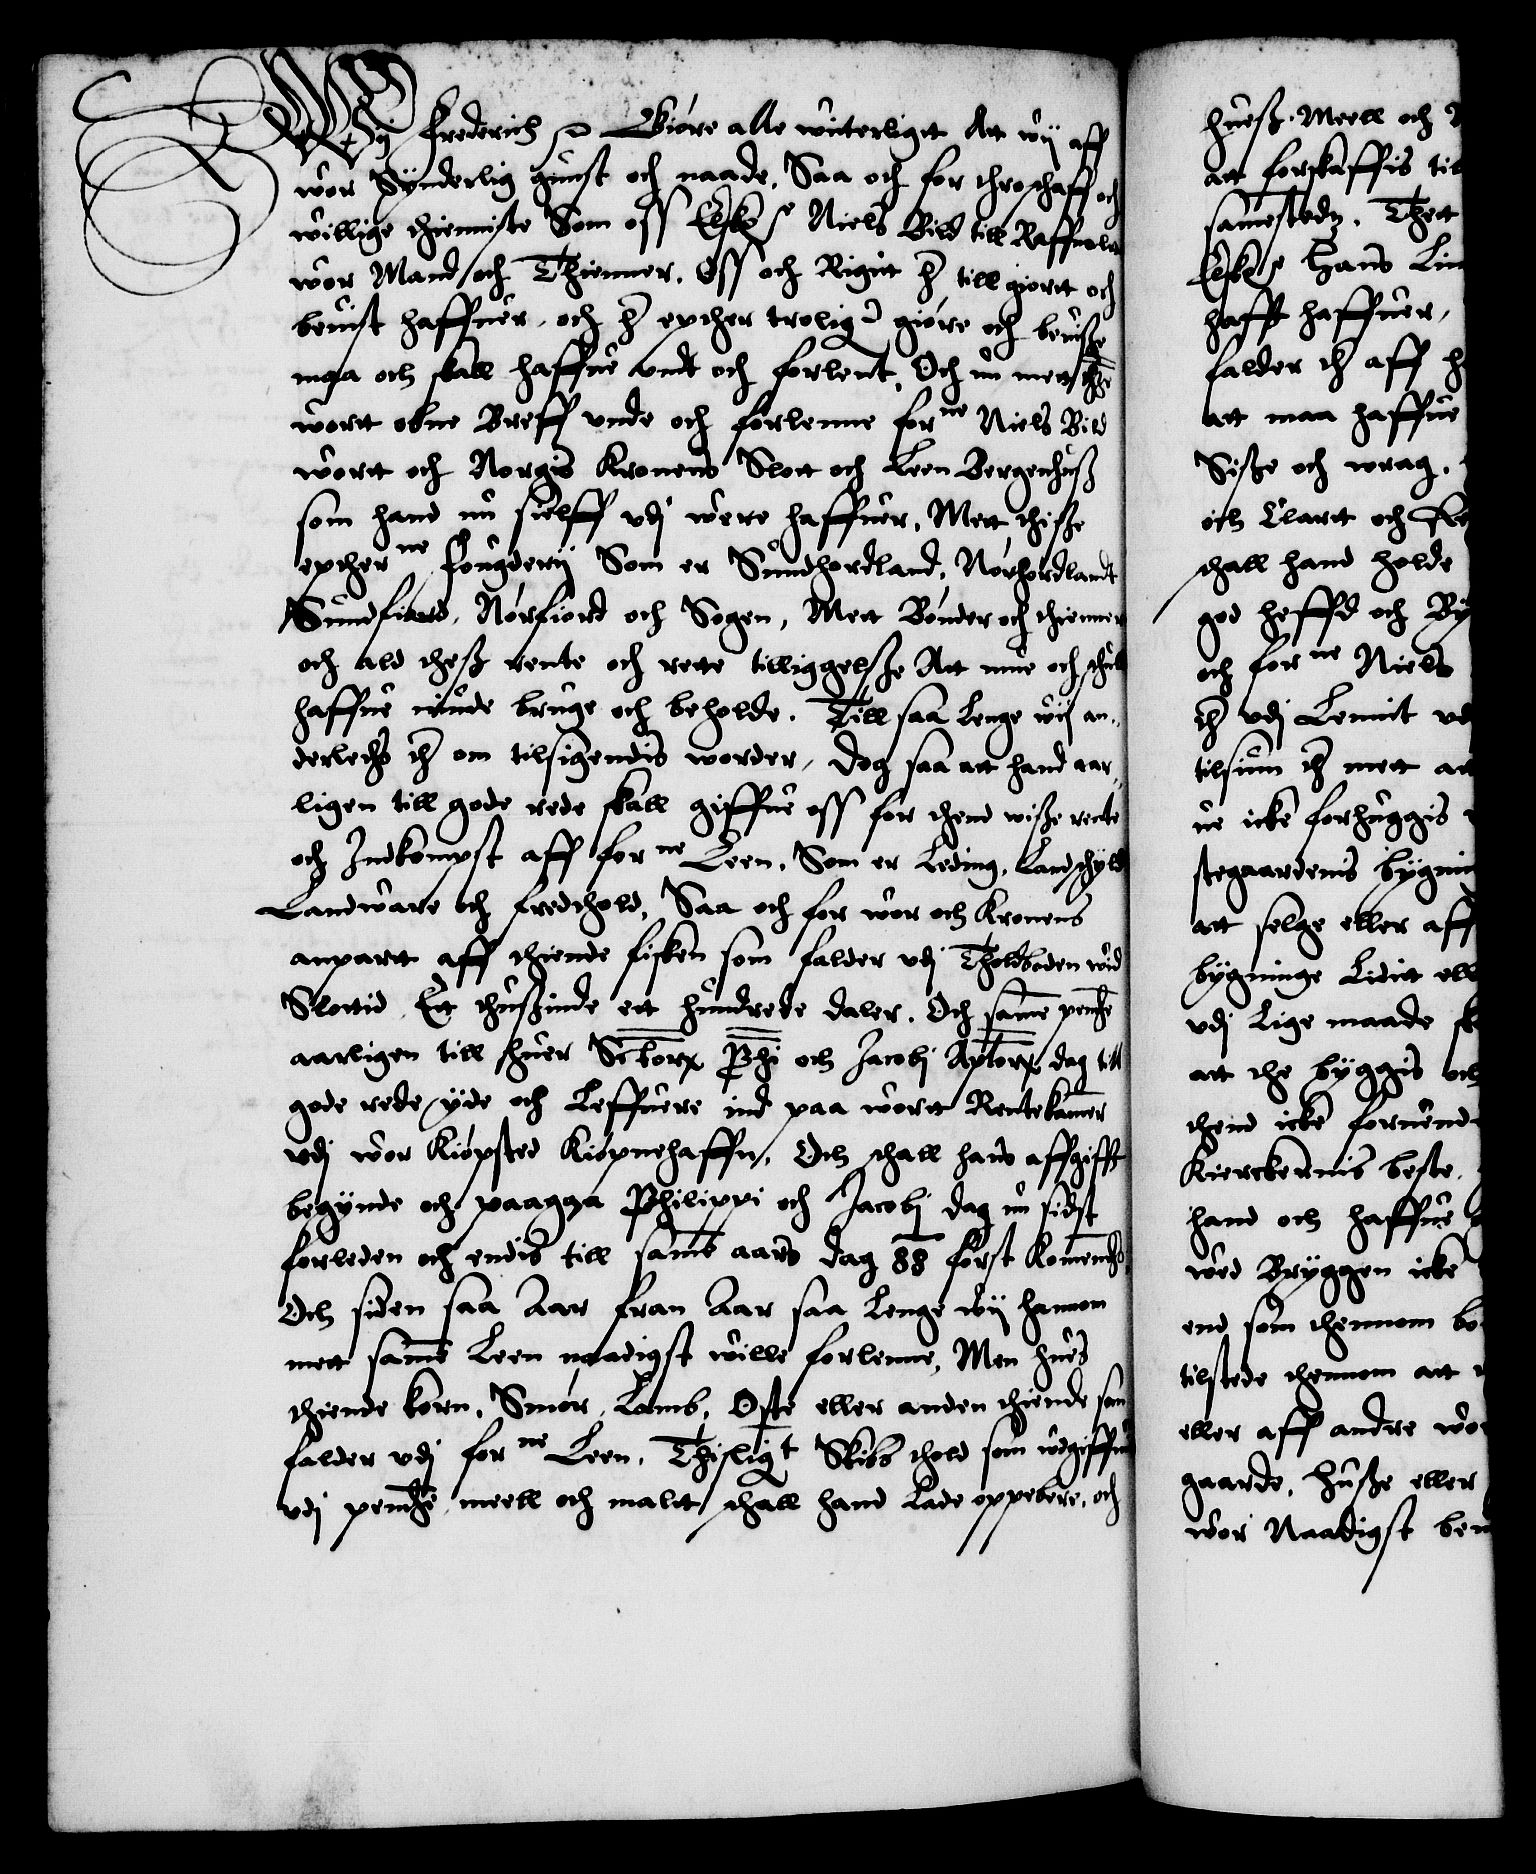 Wij Frederich etc Giøre alle witterligtt Att wij aff
wor Synderlig gunst och naade, Saa och for throschaff och
willige thienniste Som oss Elske Niels Bild till Raffnolt
wor Mand och Thienner, Oss och Rigitt her till giortt och
beuist haffuer, och her epther troligen giøre och beuisse
maa och skall haffue vndt och forlent, Och nu mett thette
wortt obne Breff vnde och forlenne forne Niels Bild
wortt och Norgis Kronens Slott och Leen Bergenhuss
som hand nu sielff vdj were haffuer, Mett thisse
epther ne fougderij Som er Sundhordland, Norhordlandt
Sundfiord, Norfiord och Sogen, Mett Bønder och thienner
och ald thess rente och rette tilliggelsse Att mue och schulle
haffue niude bruge och beholde. Till saa lenge wij an-
derledis ther om tilsigendis worder, dog saa att hand aar-
ligen till gode rede skall giffue oss for thend wisse rente
och Indkompst aff forne Leen, Som er Leding, Landschyld
Landware och fredthold, Saa och for wor och Kronens
anpartt aff thiende fisken som falder vdj Tholdboden wid
Slottid Ett thussinde ett hundrede daler. Och samme penninge
aarligen till huer Sctorum Phi och Jacobj Aptorum dag till
gode rede yde och leffuere ind paa wortt Rentekammer
vdj wor Kiøpsted Kiøpnehaffn, Och schall hans affgifft
begynde och paagaa Philippi och Jacobj dag nu sidst
forleden och endis till samme aars dag 88 først komendis
Och siden saa Aar fran Aar saa lenge wij hannom
mett samme Leen naadigst wille forlenne, Men hues
thiende korn, Smør, Lamb, Oste eller anden thiende som
falder vdj forne Leen, Thisligt Skibs thold som vdgiffues
vdj penninge, meell och maltt schall hand lade oppebere, och
huess Meell och
att forskaffis til
samestedz. Thett
Elske Hans Lin
hafft haffuer,
falder ther aff h
att maa haffue
Sisse och wrag.
och Clartt och Re
schall hand holde
god heffd och By
och forne Niels
ther vdj Lennit vd
tilsiun ther mett at
ne icke forhuggis
stegaardenis bygnin
att selge eller aff
bygninge Liditt ell
vdj lige maade sk
att the byggis och
thend icke foruend
Kierckernis beste.
hand och haffue
wed Bryggen icke
end som thennom bø
tilstede thennom att
eller aff andre wor
gaarde, husse eller
wor Naadigst bew